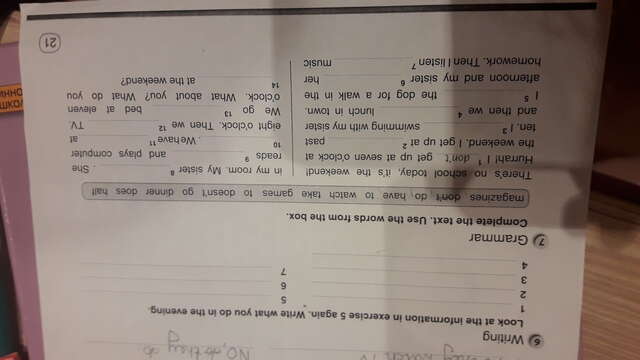 NO, they do.
6 Writing
Look at the information in exercise 5 again. Write what you do in the evening.
1
2
3
4
5
6
7
7 Grammar
Complete the text. Use the words from the box.
magazines don't do have to watch take games to doesn't go dinner does half
There's no school today, it's the weekend!
Hurrah! I 1 don't get up at seven o'clock at
the weekend. I get up at 2 past
ten. I 3 swimming with my sister
and then we 4 lunch in town.
I 5 the dog for a walk in the
afternoon and my sister 6 her
homework. Then I listen 7 music
in my room. My sister 8 . She
reads 9 and plays computer
10 . We have 11 at
eight o'clock. Then we 12 TV.
We go 13 bed at eleven
o'clock. What about you? What do you
14 at the weekend?
21